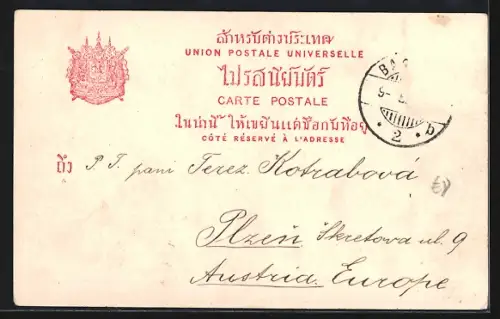 สำหรับต่างประเทศ
UNION POSTALE UNIVERSELLE
ไปรสนียบัตร์
CARTE POSTALE
ในท่านี้ ให้เขียนแต่ชื่อกับที่อยู่
CÔTÉ RÉSERVÉ À L'ADRESSE
BA
9
2 b
ถึง P. T. paní Terez. Kotrabová
Plzeň Skretova ul. 9
Austria. Europe